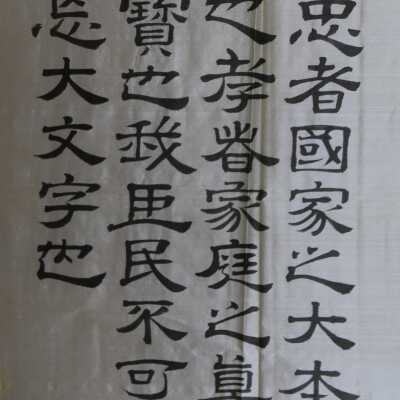 忠者國家之大本
也孝者家庭之真
寶也我臣民不可
忘大文字也